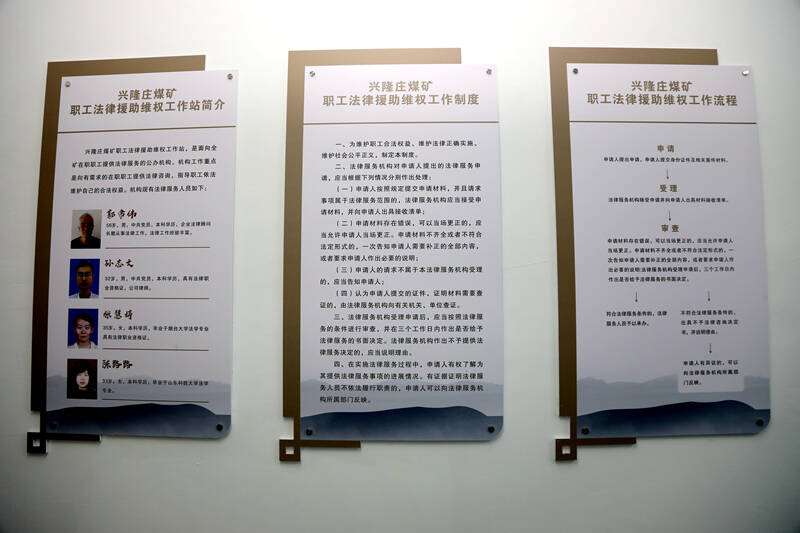 兴隆庄煤矿
职工法律援助维权工作站简介
兴隆庄煤矿职工法律援助维权工作站，是面向全
矿在职职工提供法律服务的公办机构。机构工作重点
是向有需求的在职职工提供法律咨询，指导职工依法
维护自己的合法权益。机构现有法律服务人员如下：
郭常伟
56岁，男，中共党员，本科学历，企业法律顾问
长期从事法律工作，法律工作经验丰富。
孙志文
32岁，男，中共党员，本科学历，具有法律职
业资格证，公司律师。
慧婧
35岁，女，本科学历，毕业于烟台大学法学专业
具有法律职业资格证。
陈路路
33岁，女，本科学历，毕业于山东科技大学法学
专业。
兴隆庄煤矿
职工法律援助维权工作制度
一、为维护职工合法权益、维护法律正确实施，
维护社会公平正义，制定本制度。
二、法律服务机构对申请人提出的法律服务申
请，应当根据下列情况分别作出处理：
（一）申请人按照规定提交申请材料，并且请求
事项属于法律服务范围的，法律服务机构应当接受申
请材料，并向申请人出具接收清单；
（二）申请材料存在错误，可以当场更正的，应
当允许申请人当场更正。申请材料不齐全或者不符合
法定形式的，一次告知申请人需要补正的全部内容，
或者要求申请人作出必要的说明；
（三）申请人的请求不属于本法律服务机构受理
的，应当告知申请人；
（四）认为申请人提交的证件，证明材料需要查
证的，由法律服务机构向有关机关、单位查证。
三、法律服务机构受理申请后，应当按照法律服
务的条件进行审查，并在三个工作日内作出是否给予
法律服务的书面决定。法律服务机构作出不予提供法
律服务决定的，应当说明理由。
四、在实施法律服务过程中，申请人有权了解为
其提供法律服务事项的进展情况。有证据证明法律服
务人员不依法履行职责的，申请人可以向法律服务机
构所属部门反映。
兴隆庄煤矿
职工法律援助维权工作流程
申请
申请人提出申请，申请人提交身份证件及相关案件材料。
受理
法律服务机构接受申请并向申请人出具材料接收清单。
审查
申请材料存在错误，可以当场更正的，应当允许申请人
当场更正。申请材料不齐全或者不符合法定形式的，一
次告知申请人需要补正的全部内容，或者要求申请人作
出必要的说明；法律服务机构受理申请后，三个工作日内
作出是否给予法律服务的书面决定。
符合法律服务条件的，法律
服务人员予以承办。
不符合法律服务条件的，
出具不予法律咨询决定
书，并说明理由。
申请人有异议的，可以
向法律服务机构所属部
门反映。